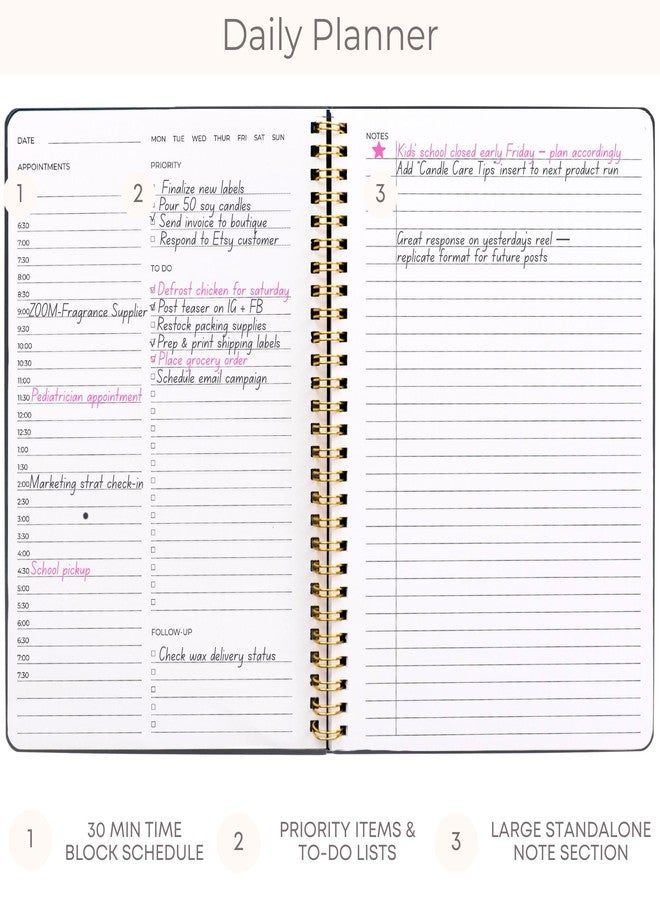 Daily Planner
DATE
MON TUE WED THUR FRI SAT SUN
APPOINTMENTS
1
6:30
7:00
7:30
8:00
8:30
9:00 ZOOM-Fragrance Supplier
9:30
10:00
10:30
11:00
11:30 Pediatrician appointment
12:00
12:30
1:00
1:30
2:00 Marketing strat check-in
2:30
3:00
3:30
4:00
4:30 School pickup
5:00
5:30
6:00
6:30
7:00
7:30
PRIORITY
2
Finalize new labels
Pour 50 soy candles
Send invoice to boutique
Respond to Etsy customer
TO DO
Defrost chicken for saturday
Post teaser on IG + FB
Restock packing supplies
Prep & print shipping labels
Place grocery order
Schedule email campaign
FOLLOW-UP
Check wax delivery status
NOTES
Kids' school closed early Friday – plan accordingly
Add "Candle Care Tips" insert to next product run
3
Great response on yesterday's reel —
replicate format for future posts
1 30 MIN TIME
BLOCK SCHEDULE
2 PRIORITY ITEMS &
TO-DO LISTS
3 LARGE STANDALONE
NOTE SECTION